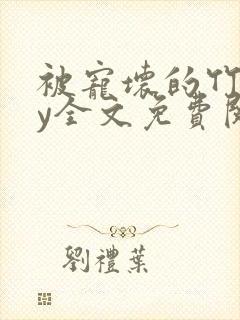 被寵壞的竹
y全文免費閱
劉禮葉